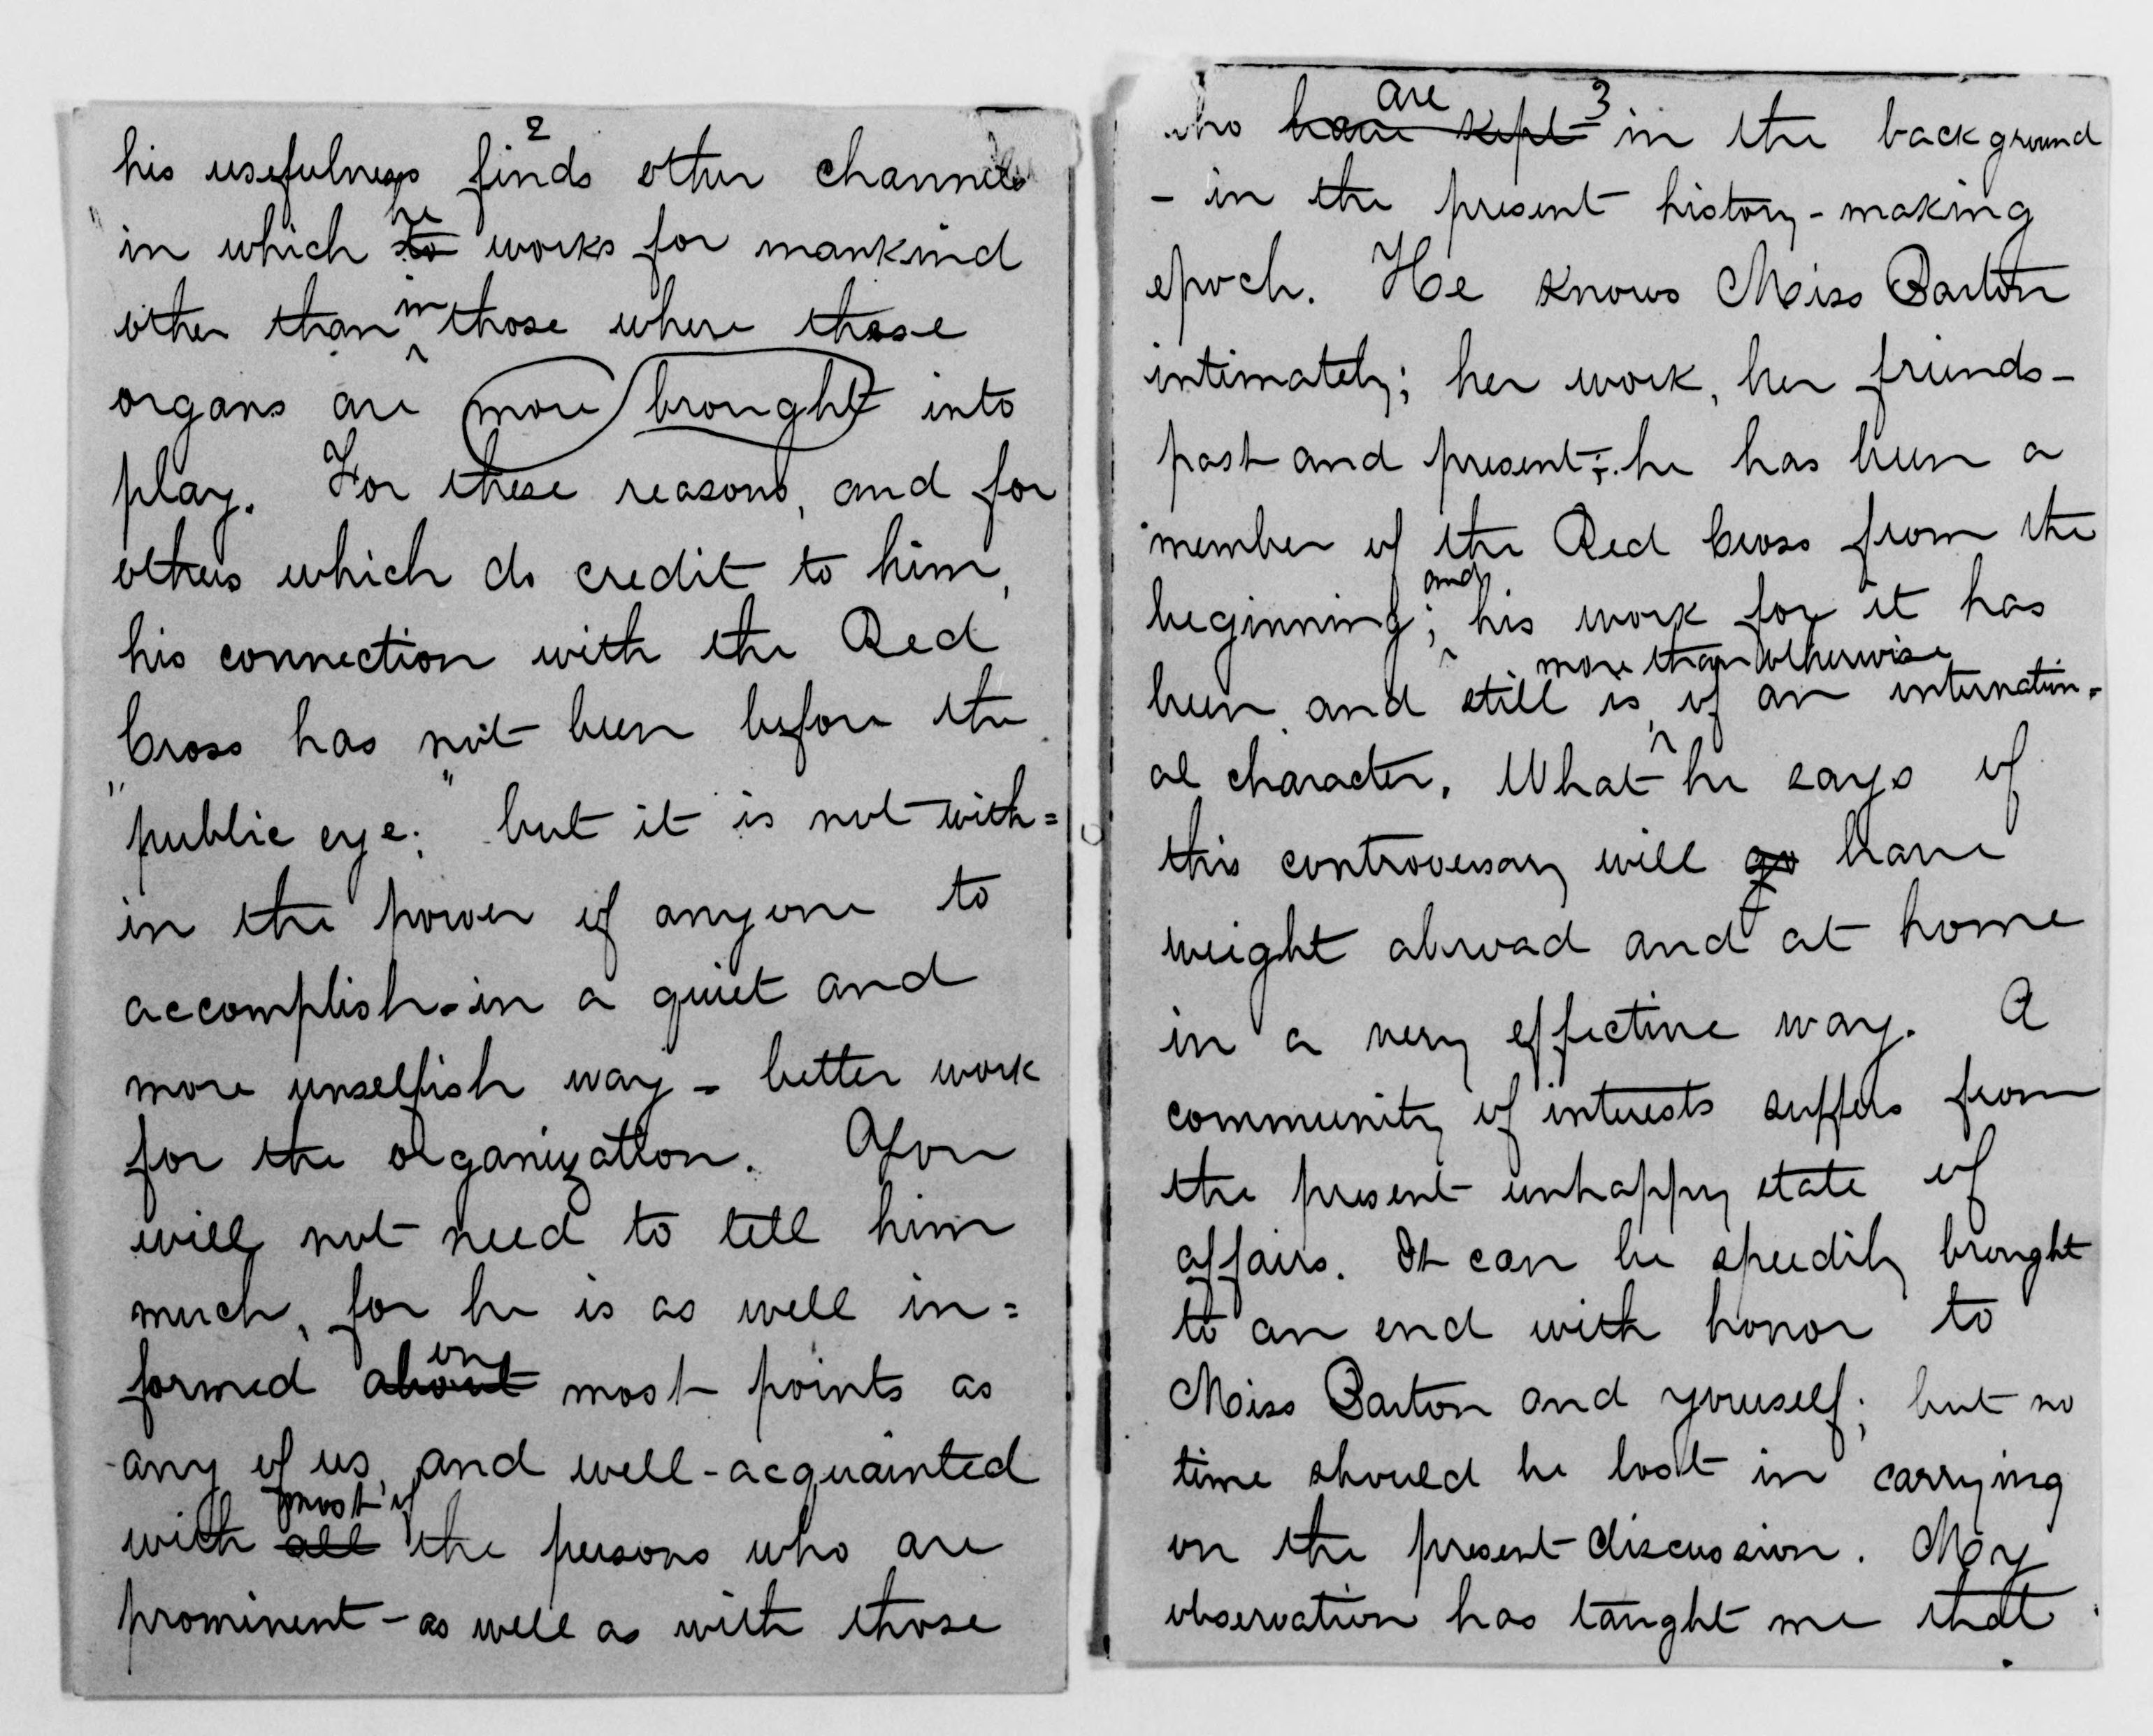 2
his usefulness finds other channels
in which to he works for mankind
other than in those where these
organs are more brought into
play. For these reasons, and for
others which do credit to him,
his connection with the Red
Cross has not been before the
"public eye;" but it is not with=
in the power of anyone to
accomplish - in a quiet and
more unselfish way - better work
for the organization. You
will not need to tell him
much, for he is as well in=
formed about on most points as
any of us, and well-acquainted
with all most of the persons who are
prominent - as well as with those
3
who have kept are in the background
- in the present history-making
epoch. He knows Miss Barton
intimately; her work, her friends -
past and present; he has been a
member of the Red Cross from the
beginning; and his work for it has
been and still is, more than otherwise of an internation=
al character. What he says of
this controversary will go have
weight abroad and at home
in a very effective way. A
community of interests suffers from
the present unhappy state of
affairs. It can be speedily brought
to an end with honor to
Miss Barton and yourself; but no
time should be lost in carrying
on the present discussion. My
observation has taught me that